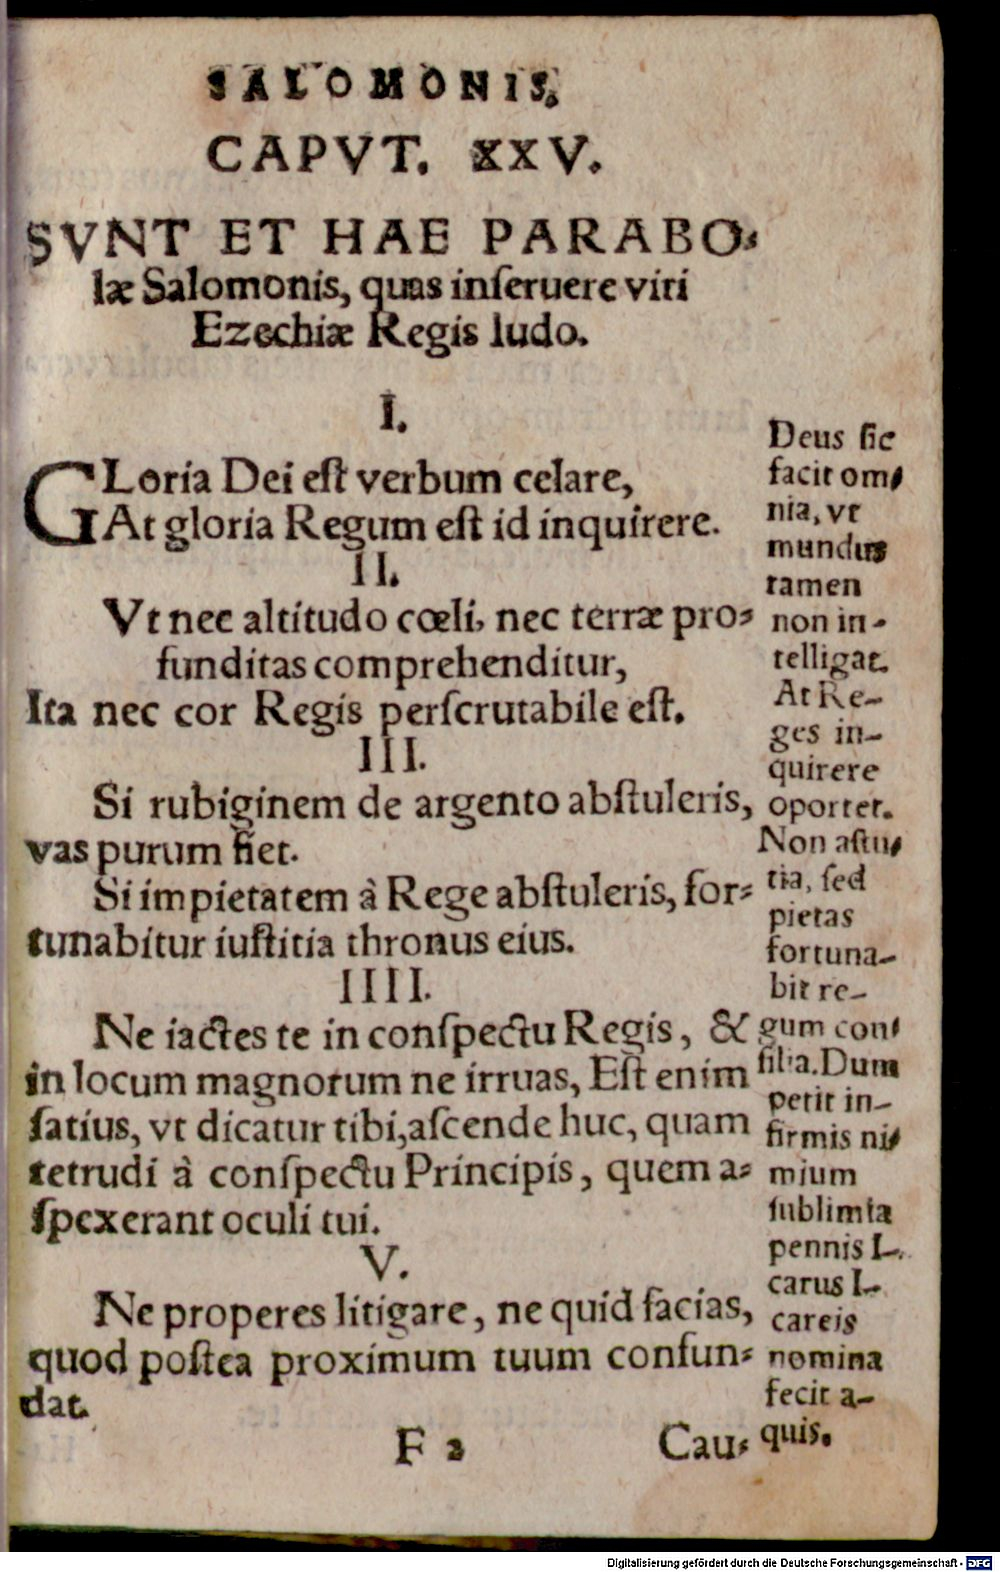 SALOMONIS.
CAPVT. XXV.
SVNT ET HAE PARABO⸗
læ Salomonis, quas inſeruere viri
Ezechiæ Regis ludo.
I.
GLoria Dei eſt verbum celare,
At gloria Regum eſt id inquirere.
II.
Vt nec altitudo cœli, nec terræ pro⸗
funditas comprehenditur,
Ita nec cor Regis perſcrutabile eſt.
III.
Si rubiginem de argento abſtuleris,
vas purum fiet.
Si impietatem à Rege abſtuleris, for⸗
tunabitur iuſtitia thronus eius.
IIII.
Ne iactes te in conſpectu Regis, &
in locum magnorum ne irruas, Eſt enim
ſatius, vt dicatur tibi, aſcende huc, quam
tetrudi à conſpectu Principis, quem a⸗
ſpexerant oculi tui.
V.
Ne properes litigare, ne quid facias,
quod poſtea proximum tuum confun⸗
dat.
F 2
Cau⸗
Deus ſic
facit om⸗
nia, vt
mundus
tamen
non in-
telligat.
At Re-
ges in-
quirere
oportet.
Non aſtu⸗
tia, ſed
pietas
fortuna-
bit re-
gum con⸗
ſilia. Dum
petit in-
firmis ni⸗
mium
ſublimia
pennis I-
carus I-
careis
nomina
fecit a-
quis.
Digitalisierung gefördert durch die Deutsche Forschungsgemeinschaft - DFG